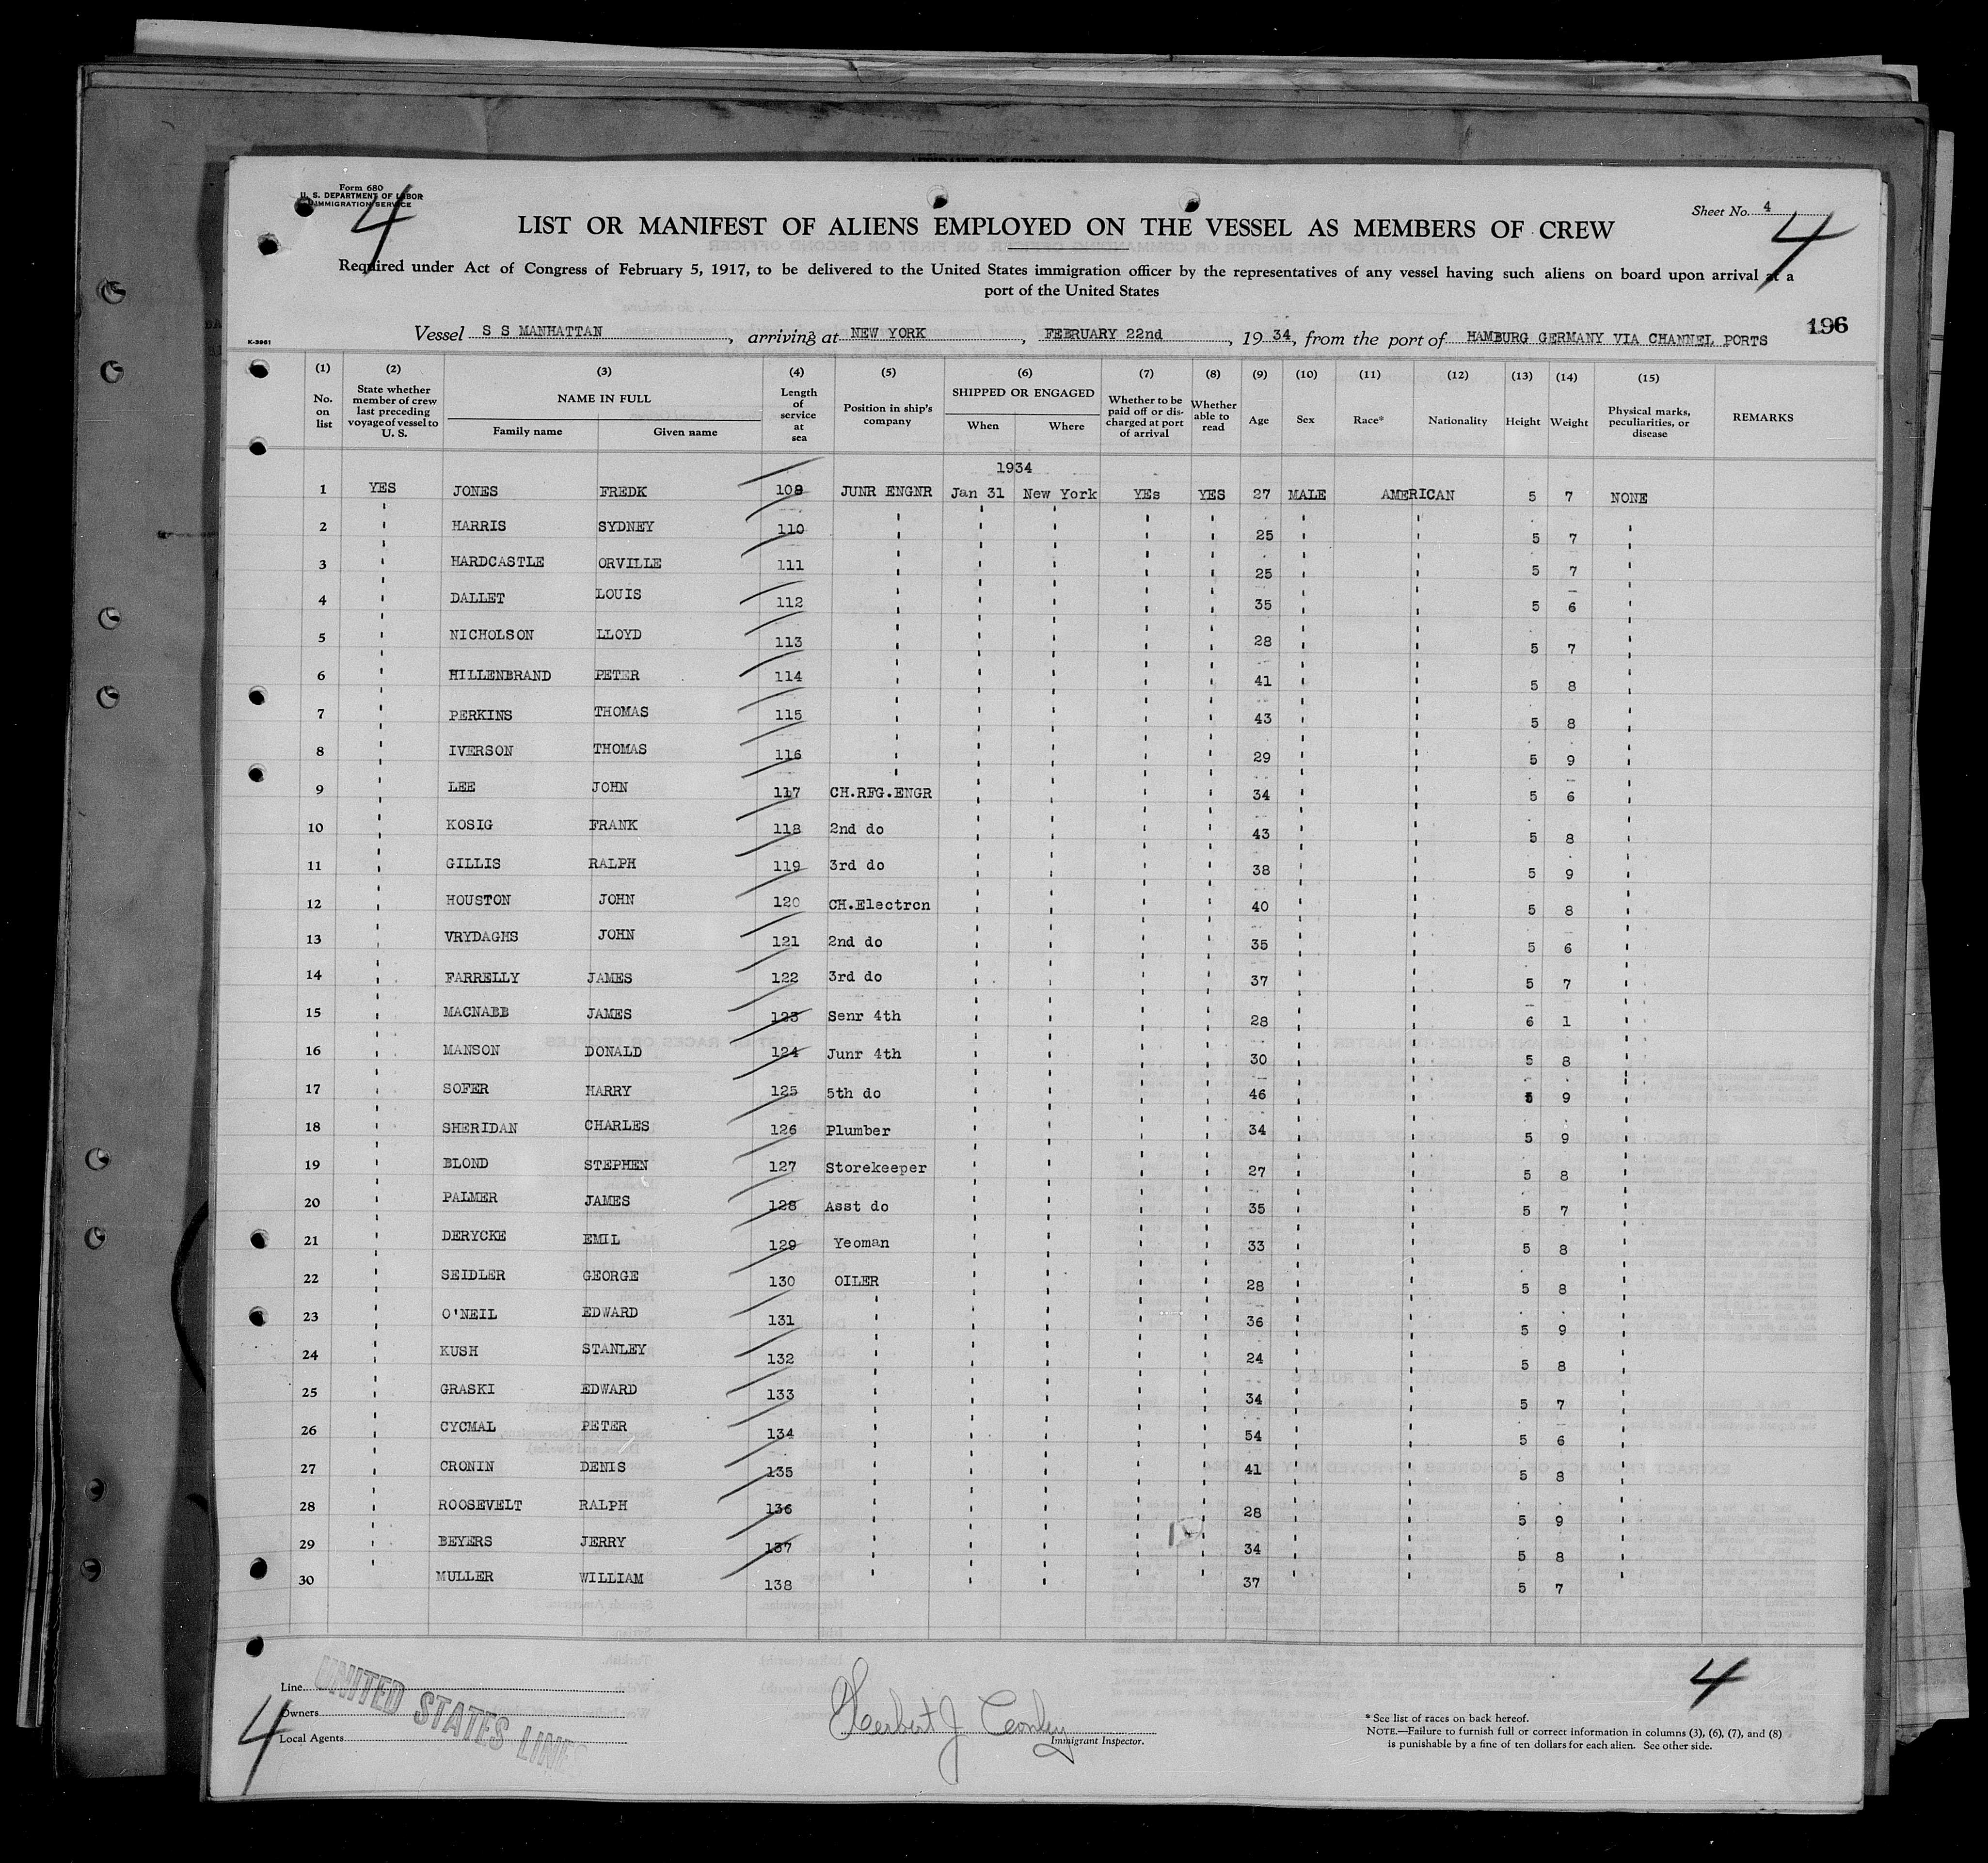 Form 680
U. S. DEPARTMENT OF LABOR
IMMIGRATION SERVICE
4
Sheet No. 4
4
LIST OR MANIFEST OF ALIENS EMPLOYED ON THE VESSEL AS MEMBERS OF CREW
Required under Act of Congress of February 5, 1917, to be delivered to the United States immigration officer by the representatives of any vessel having such aliens on board upon arrival at a
port of the United States
Vessel S S MANHATTAN, arriving at NEW YORK, FEBRUARY 22nd, 1934, from the port of HAMBURG GERMANY VIA CHANNEL PORTS 196
K-3961
(1) No. on list (2) State whether member of crew last preceding voyage of vessel to U. S. (3) NAME IN FULL Family name Given name (4) Length of service at sea (5) Position in ship's company (6) SHIPPED OR ENGAGED When Where (7) Whether to be paid off or discharged at port of arrival (8) Whether able to read (9) Age (10) Sex (11) Race* (12) Nationality (13) Height (14) Weight (15) Physical marks, peculiarities, or disease REMARKS
1934
1 YES JONES FREDK 108 JUNR ENGNR Jan 31 New York YEs YES 27 MALE AMERICAN 5 7 NONE
2 " HARRIS SYDNEY 110 " " " " " 25 " " 5 7 "
3 " HARDCASTLE ORVILLE 111 " " " " " 25 " " 5 7 "
4 " DALLET LOUIS 112 " " " " " 35 " " 5 6 "
5 " NICHOLSON LLOYD 113 " " " " " 28 " " 5 7 "
6 " HILLENBRAND PETER 114 " " " " " 41 " " 5 8 "
7 " PERKINS THOMAS 115 " " " " " 43 " " 5 8 "
8 " IVERSON THOMAS 116 " " " " " 29 " " 5 9 "
9 " LEE JOHN 117 CH.RFG.ENGR " " " " 34 " " 5 6 "
10 " KOSIG FRANK 118 2nd do " " " " 43 " " 5 8 "
11 " GILLIS RALPH 119 3rd do " " " " 38 " " 5 9 "
12 " HOUSTON JOHN 120 CH.Electrcn " " " " 40 " " 5 8 "
13 " VRYDAGHS JOHN 121 2nd do " " " " 35 " " 5 6 "
14 " FARRELLY JAMES 122 3rd do " " " " 37 " " 5 7 "
15 " MACNABB JAMES 123 Senr 4th " " " " 28 " " 6 1 "
16 " MANSON DONALD 124 Junr 4th " " " " 30 " " 5 8 "
17 " SOFER HARRY 125 5th do " " " " 46 " " 5 9 "
18 " SHERIDAN CHARLES 126 Plumber " " " " 34 " " 5 9 "
19 " BLOND STEPHEN 127 Storekeeper " " " " 27 " " 5 8 "
20 " PALMER JAMES 128 Asst do " " " " 35 " " 5 7 "
21 " DERYCKE EMIL 129 Yeoman " " " " 33 " " 5 8 "
22 " SEIDLER GEORGE 130 OILER " " " " 28 " " 5 8 "
23 " O'NEIL EDWARD 131 " " " " " 36 " " 5 9 "
24 " KUSH STANLEY 132 " " " " " 24 " " 5 8 "
25 " GRASKI EDWARD 133 " " " " " 34 " " 5 7 "
26 " CYCMAL PETER 134 " " " " " 54 " " 5 6 "
27 " CRONIN DENIS 135 " " " " " 41 " " 5 8 "
28 " ROOSEVELT RALPH 136 " " " " " 28 " " 5 9 "
29 " BEYERS JERRY 137 " " " " " 34 " " 5 8 "
30 MULLER WILLIAM 138 " " " " " 37 " " 5 7 "
Line
Owners
Local Agents
UNITED STATES LINES
4
Herbert J Conley
Immigrant Inspector.
4
* See list of races on back hereof.
NOTE.—Failure to furnish full or correct information in columns (3), (6), (7), and (8)
is punishable by a fine of ten dollars for each alien. See other side.